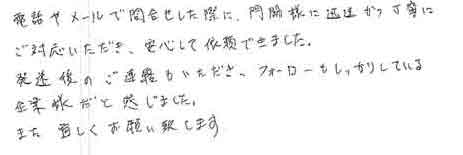 電話やメールで問合せした際に、門間様に迅速かつ丁寧に
ご対応いただき、安心して依頼できました。
発送後のご連絡もいただき、フォローもしっかりしている
企業様だと感じました。
また宜しくお願い致します